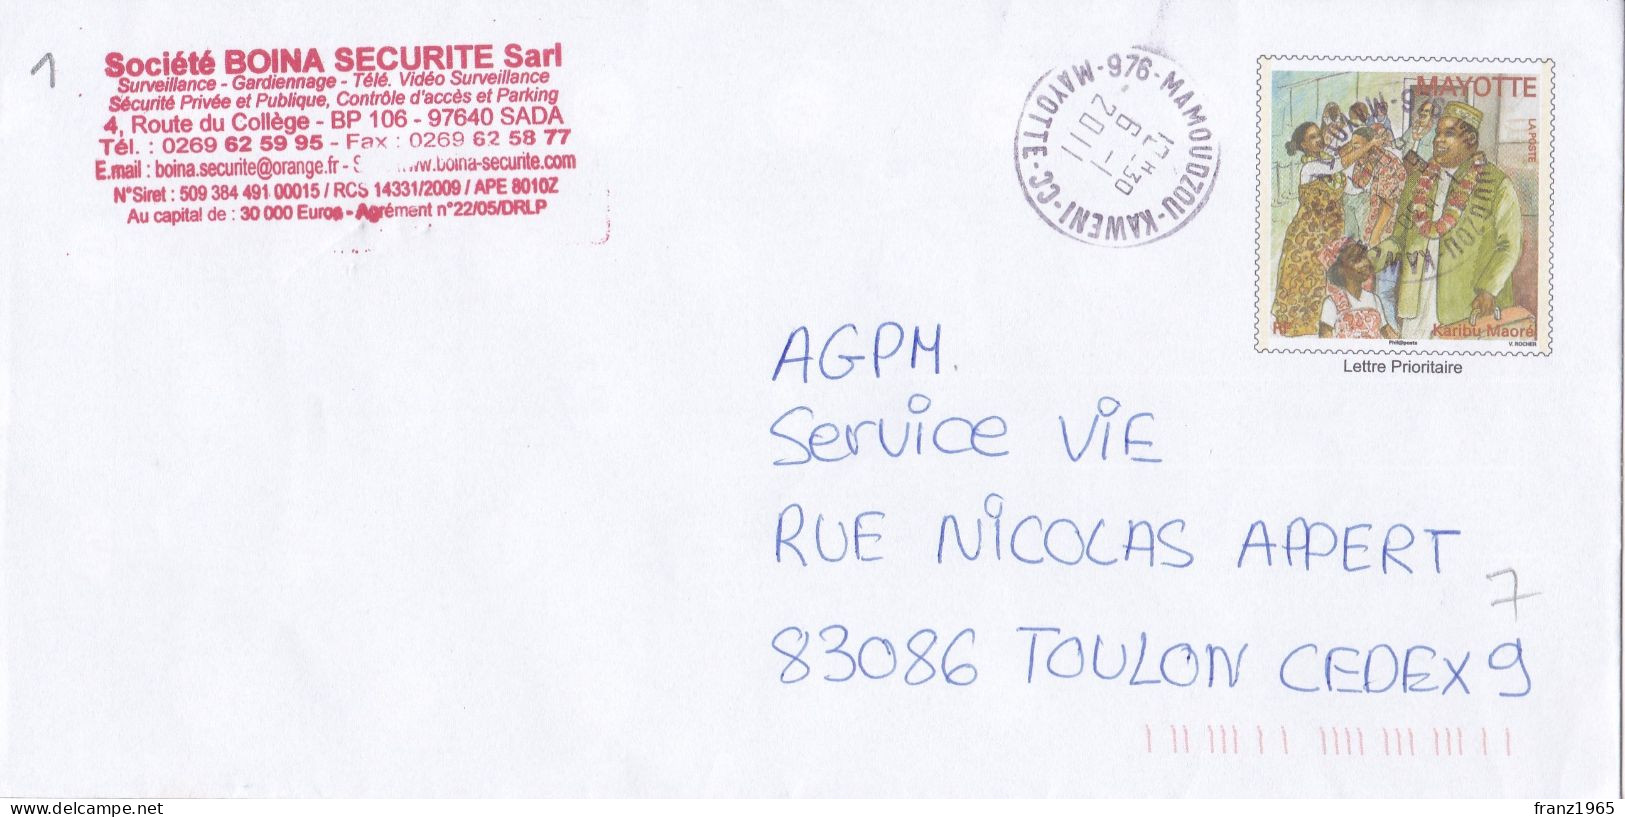 1
Société BOINA SECURITE Sarl
Surveillance - Gardiennage - Télé. Vidéo Surveillance
Sécurité Privée et Publique, Contrôle d'accès et Parking
4, Route du Collège - BP 106 - 97640 SADA
Tél. : 0269 62 59 95 - Fax : 0269 62 58 77
E.mail : boina.securite@orange.fr - S .www.boina-securite.com
N°Siret : 509 384 491 00015 / RCS 14331/2009 / APE 8010Z
Au capital de : 30 000 Euros - Agrément n°22/05/DRLP
976-MAMOUDZOU-KAWENI-CC-MAYOTTE
2011
MAYOTTE
LA POSTE
RF
Karibu Maoré
Phil@poste
V. ROCHER
Lettre Prioritaire
AGPM
Service ViE
RUE NiCOLAS APPERT
7
83086 TOULON CEDEX 9
www.delcampe.net
franz1965